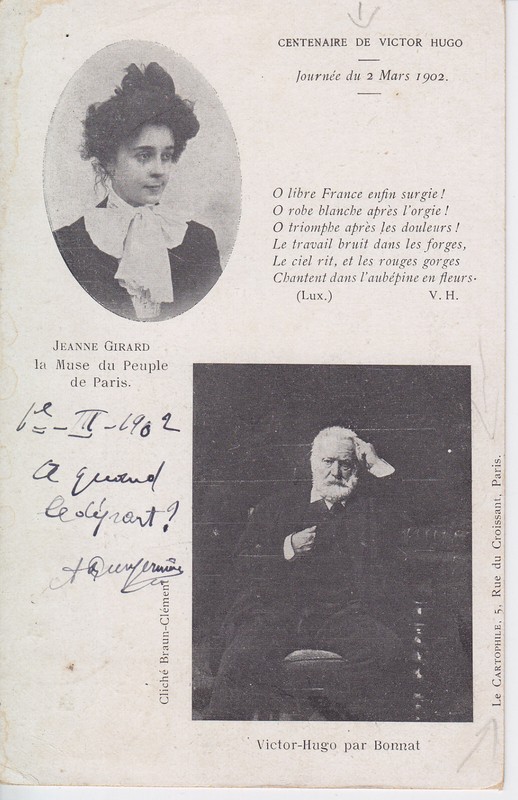 CENTENAIRE DE VICTOR HUGO
Journée du 2 Mars 1902.
O libre France enfin surgie !
O robe blanche après l'orgie !
O triomphe après les douleurs !
Le travail bruit dans les forges,
Le ciel rit, et les rouges gorges
Chantent dans l'aubépine en fleurs.
(Lux.) V. H.
JEANNE GIRARD
la Muse du Peuple
de Paris.
1902
A quand
le départ ?
Cliché Braun-Clément
Le CARTOPHILE, 5, Rue du Croissant, Paris.
Victor-Hugo par Bonnat